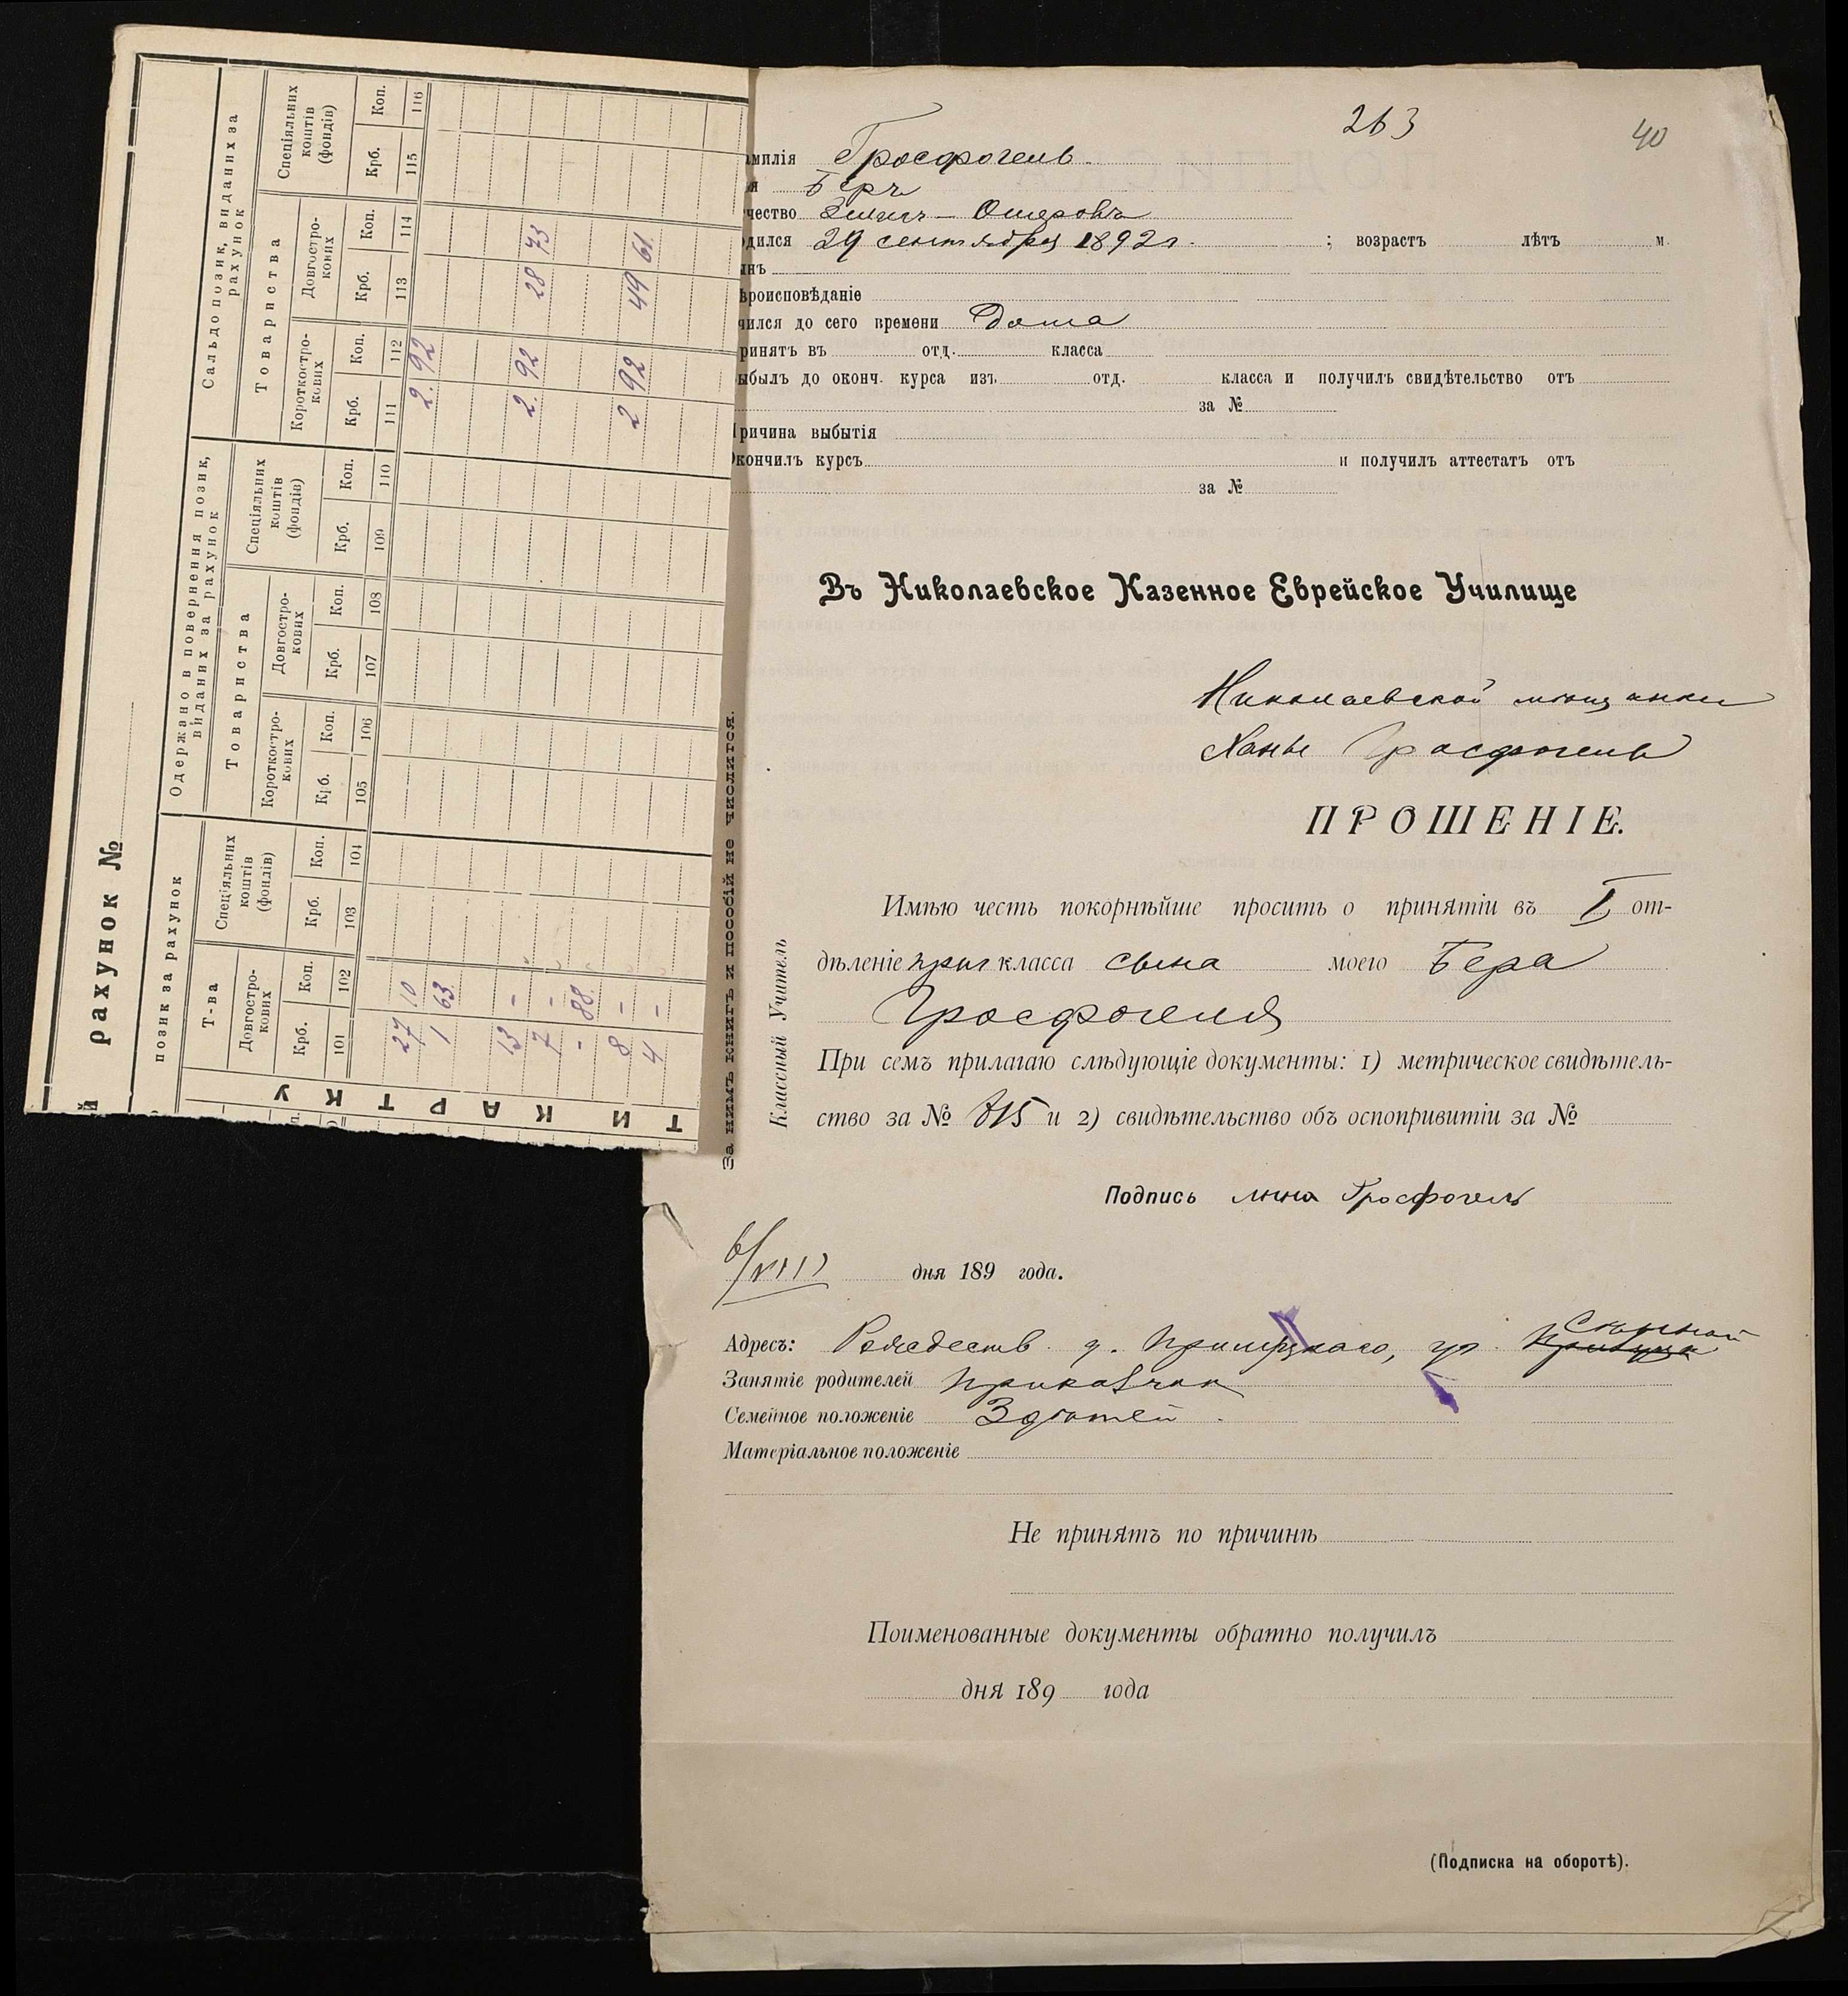 рахунок №
позик за рахунок
Т-ва
Спеціяльних коштів (фондів)
Довгостро-кових
Крб. Коп. Крб. Коп.
101 102 103 104
27 10
1 63
13 -
7 -
- 88
8 -
4 -
ТИ КАРТКУ
Одержано в повернення позик, виданих за рахунок
Товариства
Спеціяльних коштів (фондів)
Короткостро-кових
Довгостро-кових
Крб. Коп. Крб. Коп. Крб. Коп.
105 106 107 108 109 110
Сальдо позик, виданих за рахунок
Товариства
Спеціяльних коштів (фондів)
Короткостро-кових
Довгостро-кових
Крб. Коп. Крб. Коп. Крб. Коп.
111 112 113 114 115 116
2. 92
2. 92 28 73
2 92 49 61
263
40
амилія Гросфогель.
я Беръ
чество Зелигъ-Ошеровъ
дился 29 сентября 1892 г. ; возрастъ лѣтъ м.
нъ
ѣроисповѣданіе
чился до сего времени Дома
ринятъ въ отд. класса
ыбылъ до оконч. курса изъ отд. класса и получилъ свидѣтельство отъ
за №
Причина выбытія
Окончилъ курсъ и получилъ аттестатъ отъ
за №
Въ Николаевское Казенное Еврейское Училище
Николаевской мѣщанки
Ханы Гросфогель
ПРОШЕНІЕ.
Имѣю честь покорнѣйше просить о принятіи въ I от-
дѣленіе приг класса сына моего Бера
Гросфогеля
При семъ прилагаю слѣдующіе документы: 1) метрическое свидѣтель-
ство за № 815 и 2) свидѣтельство объ оспопривитіи за №
Подпись Гросфогель
6/VIII дня 189 года.
Адресъ: Рождеств. д. уг.
Занятіе родителей Приказчик
Семейное положеніе 3 дѣтей.
Матеріальное положеніе
Не принятъ по причинѣ
Поименованные документы обратно получилъ
дня 189 года
(Подписка на оборотѣ).
За нимъ книгъ и пособій не числится.
Классный Учитель